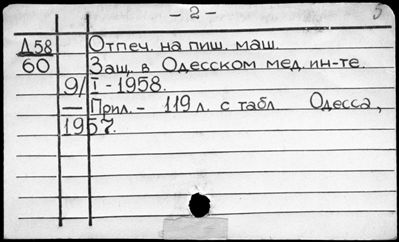 - 2 - 5
Д58 Отпеч. на пиш. маш.
60 Защ. в Одесском мед. ин-те.
9/I - 1958.
— Прил. - 119 л. с табл Одесса,
1957.